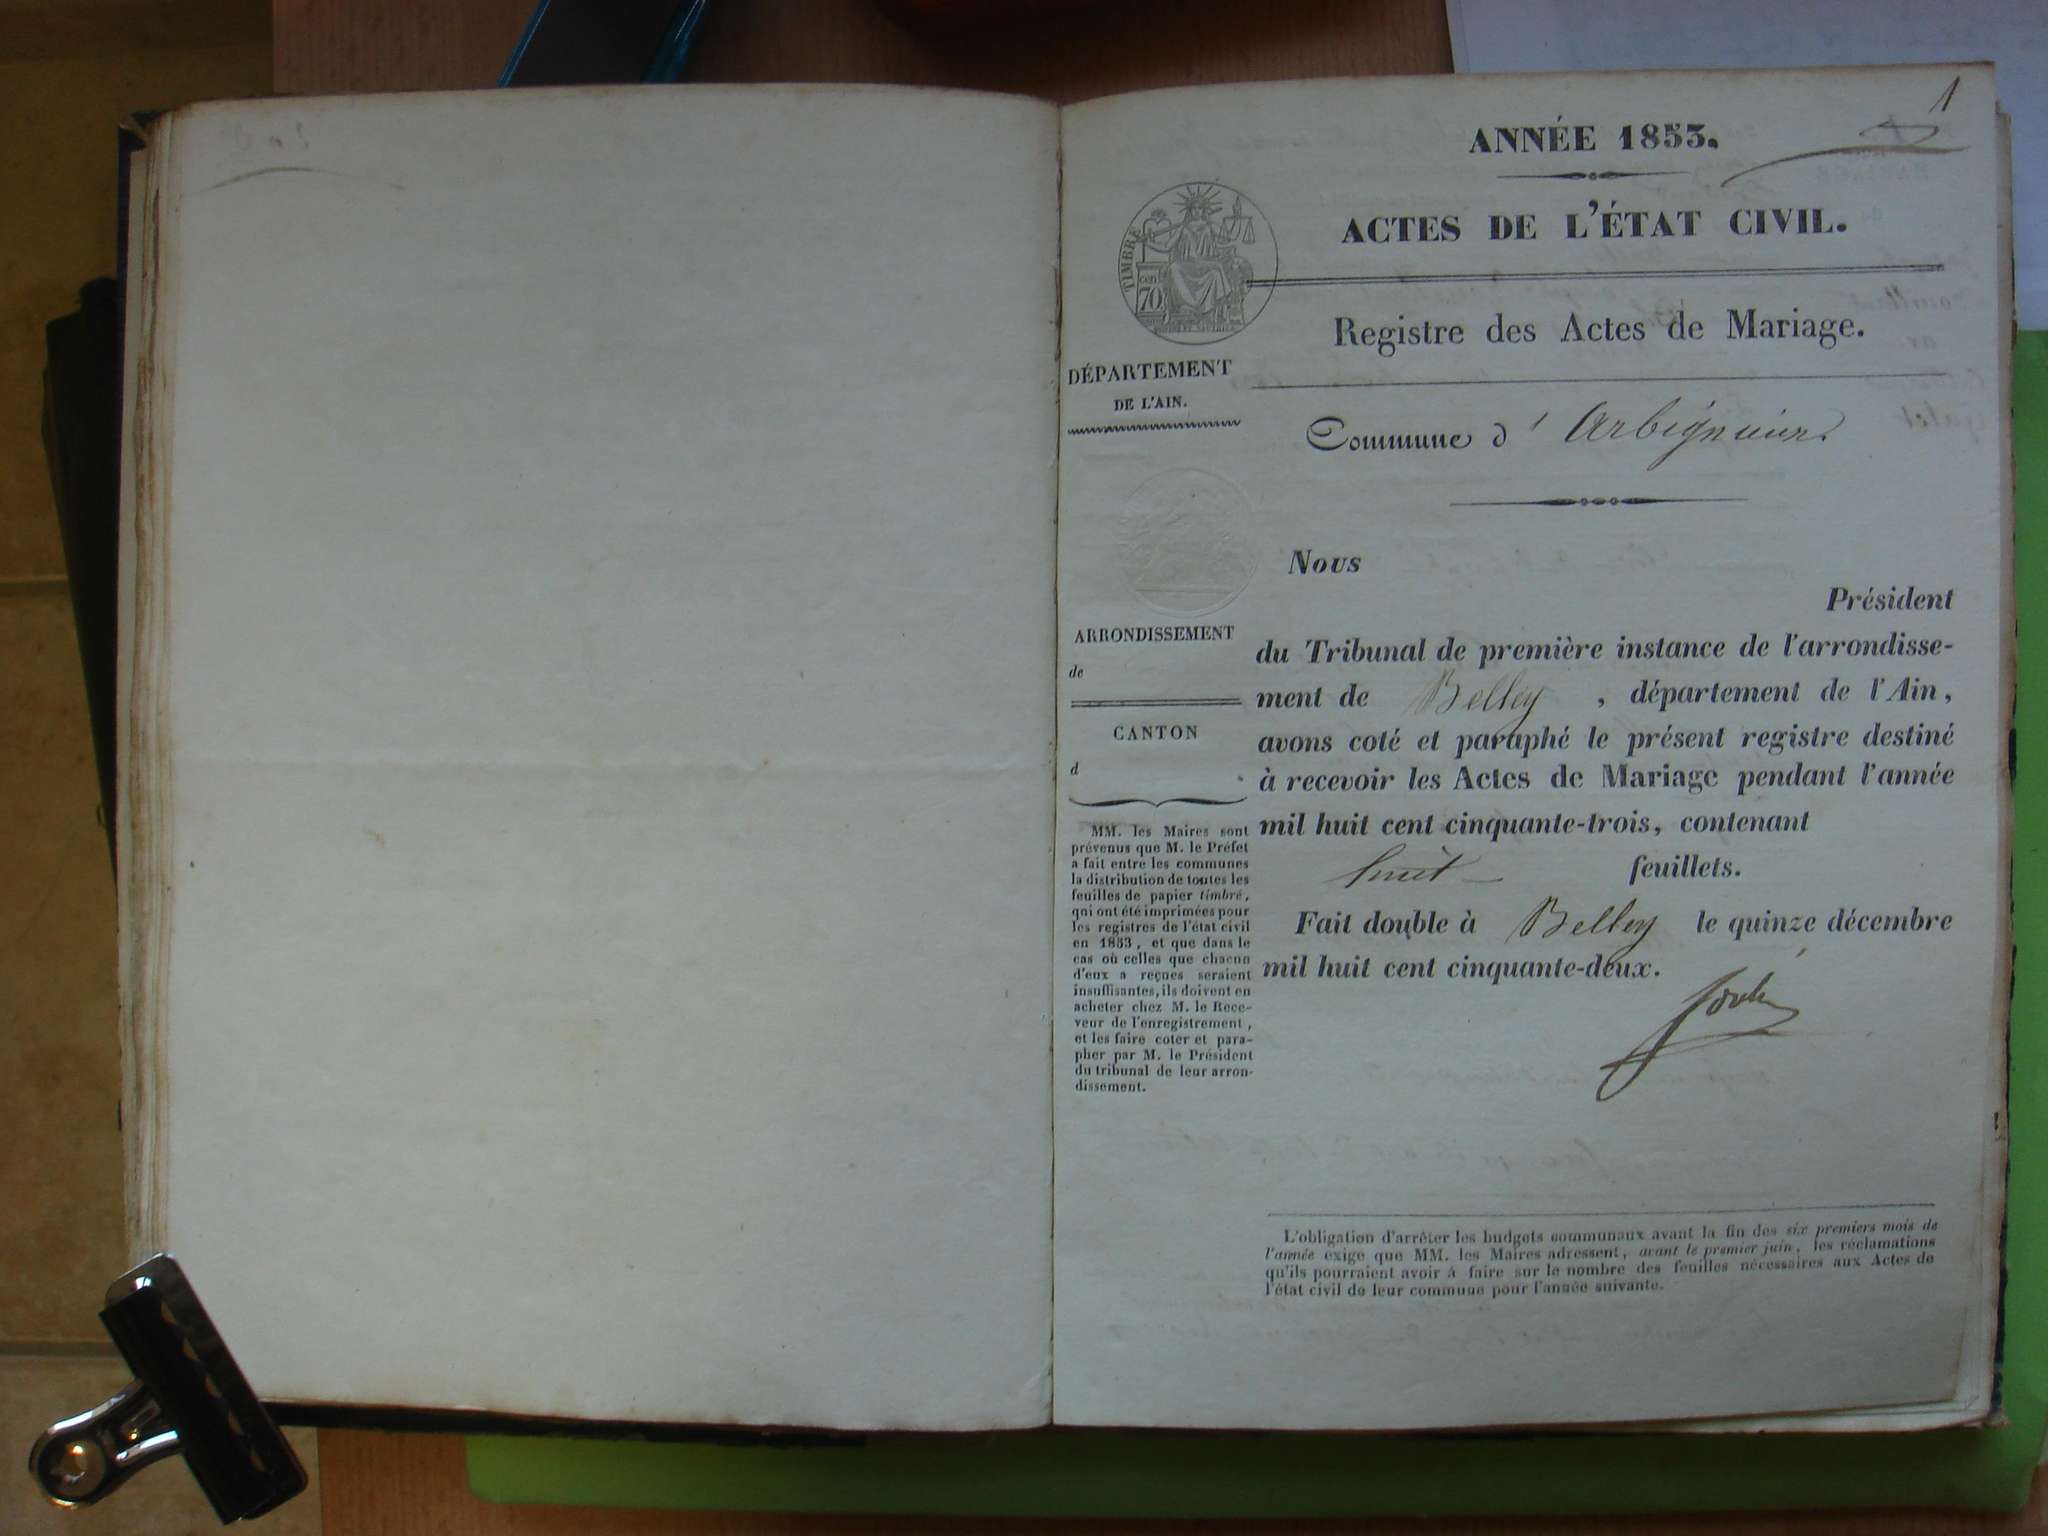 1
ANNÉE 1853.
ACTES DE L'ÉTAT CIVIL.
TIMBRE
70
Registre des Actes de Mariage.
DÉPARTEMENT
DE L'AIN.
Commune d'Arbignieu
ARRONDISSEMENT
de
CANTON
d
MM. les Maires sont
prévenus que M. le Préfet
a fait entre les communes
la distribution de toutes les
feuilles de papier timbré,
qui ont été imprimées pour
les registres de l'état civil
en 1853, et que dans le
cas où celles que chacun
d'eux a reçues seraient
insuffisantes, ils doivent en
acheter chez M. le Rece-
veur de l'enregistrement,
et les faire coter et para-
pher par M. le Président
du tribunal de leur arron-
dissement.
Nous
Président
du Tribunal de première instance de l'arrondisse-
ment de Belley, département de l'Ain,
avons coté et paraphé le présent registre destiné
à recevoir les Actes de Mariage pendant l'année
mil huit cent cinquante-trois, contenant
huit feuillets.
Fait double à Belley le quinze décembre
mil huit cent cinquante-deux.
L'obligation d'arrêter les budgets communaux avant la fin des six premiers mois de
l'année exige que MM. les Maires adressent, avant le premier juin, les réclamations
qu'ils pourraient avoir à faire sur le nombre des feuilles nécessaires aux Actes de
l'état civil de leur commune pour l'année suivante.